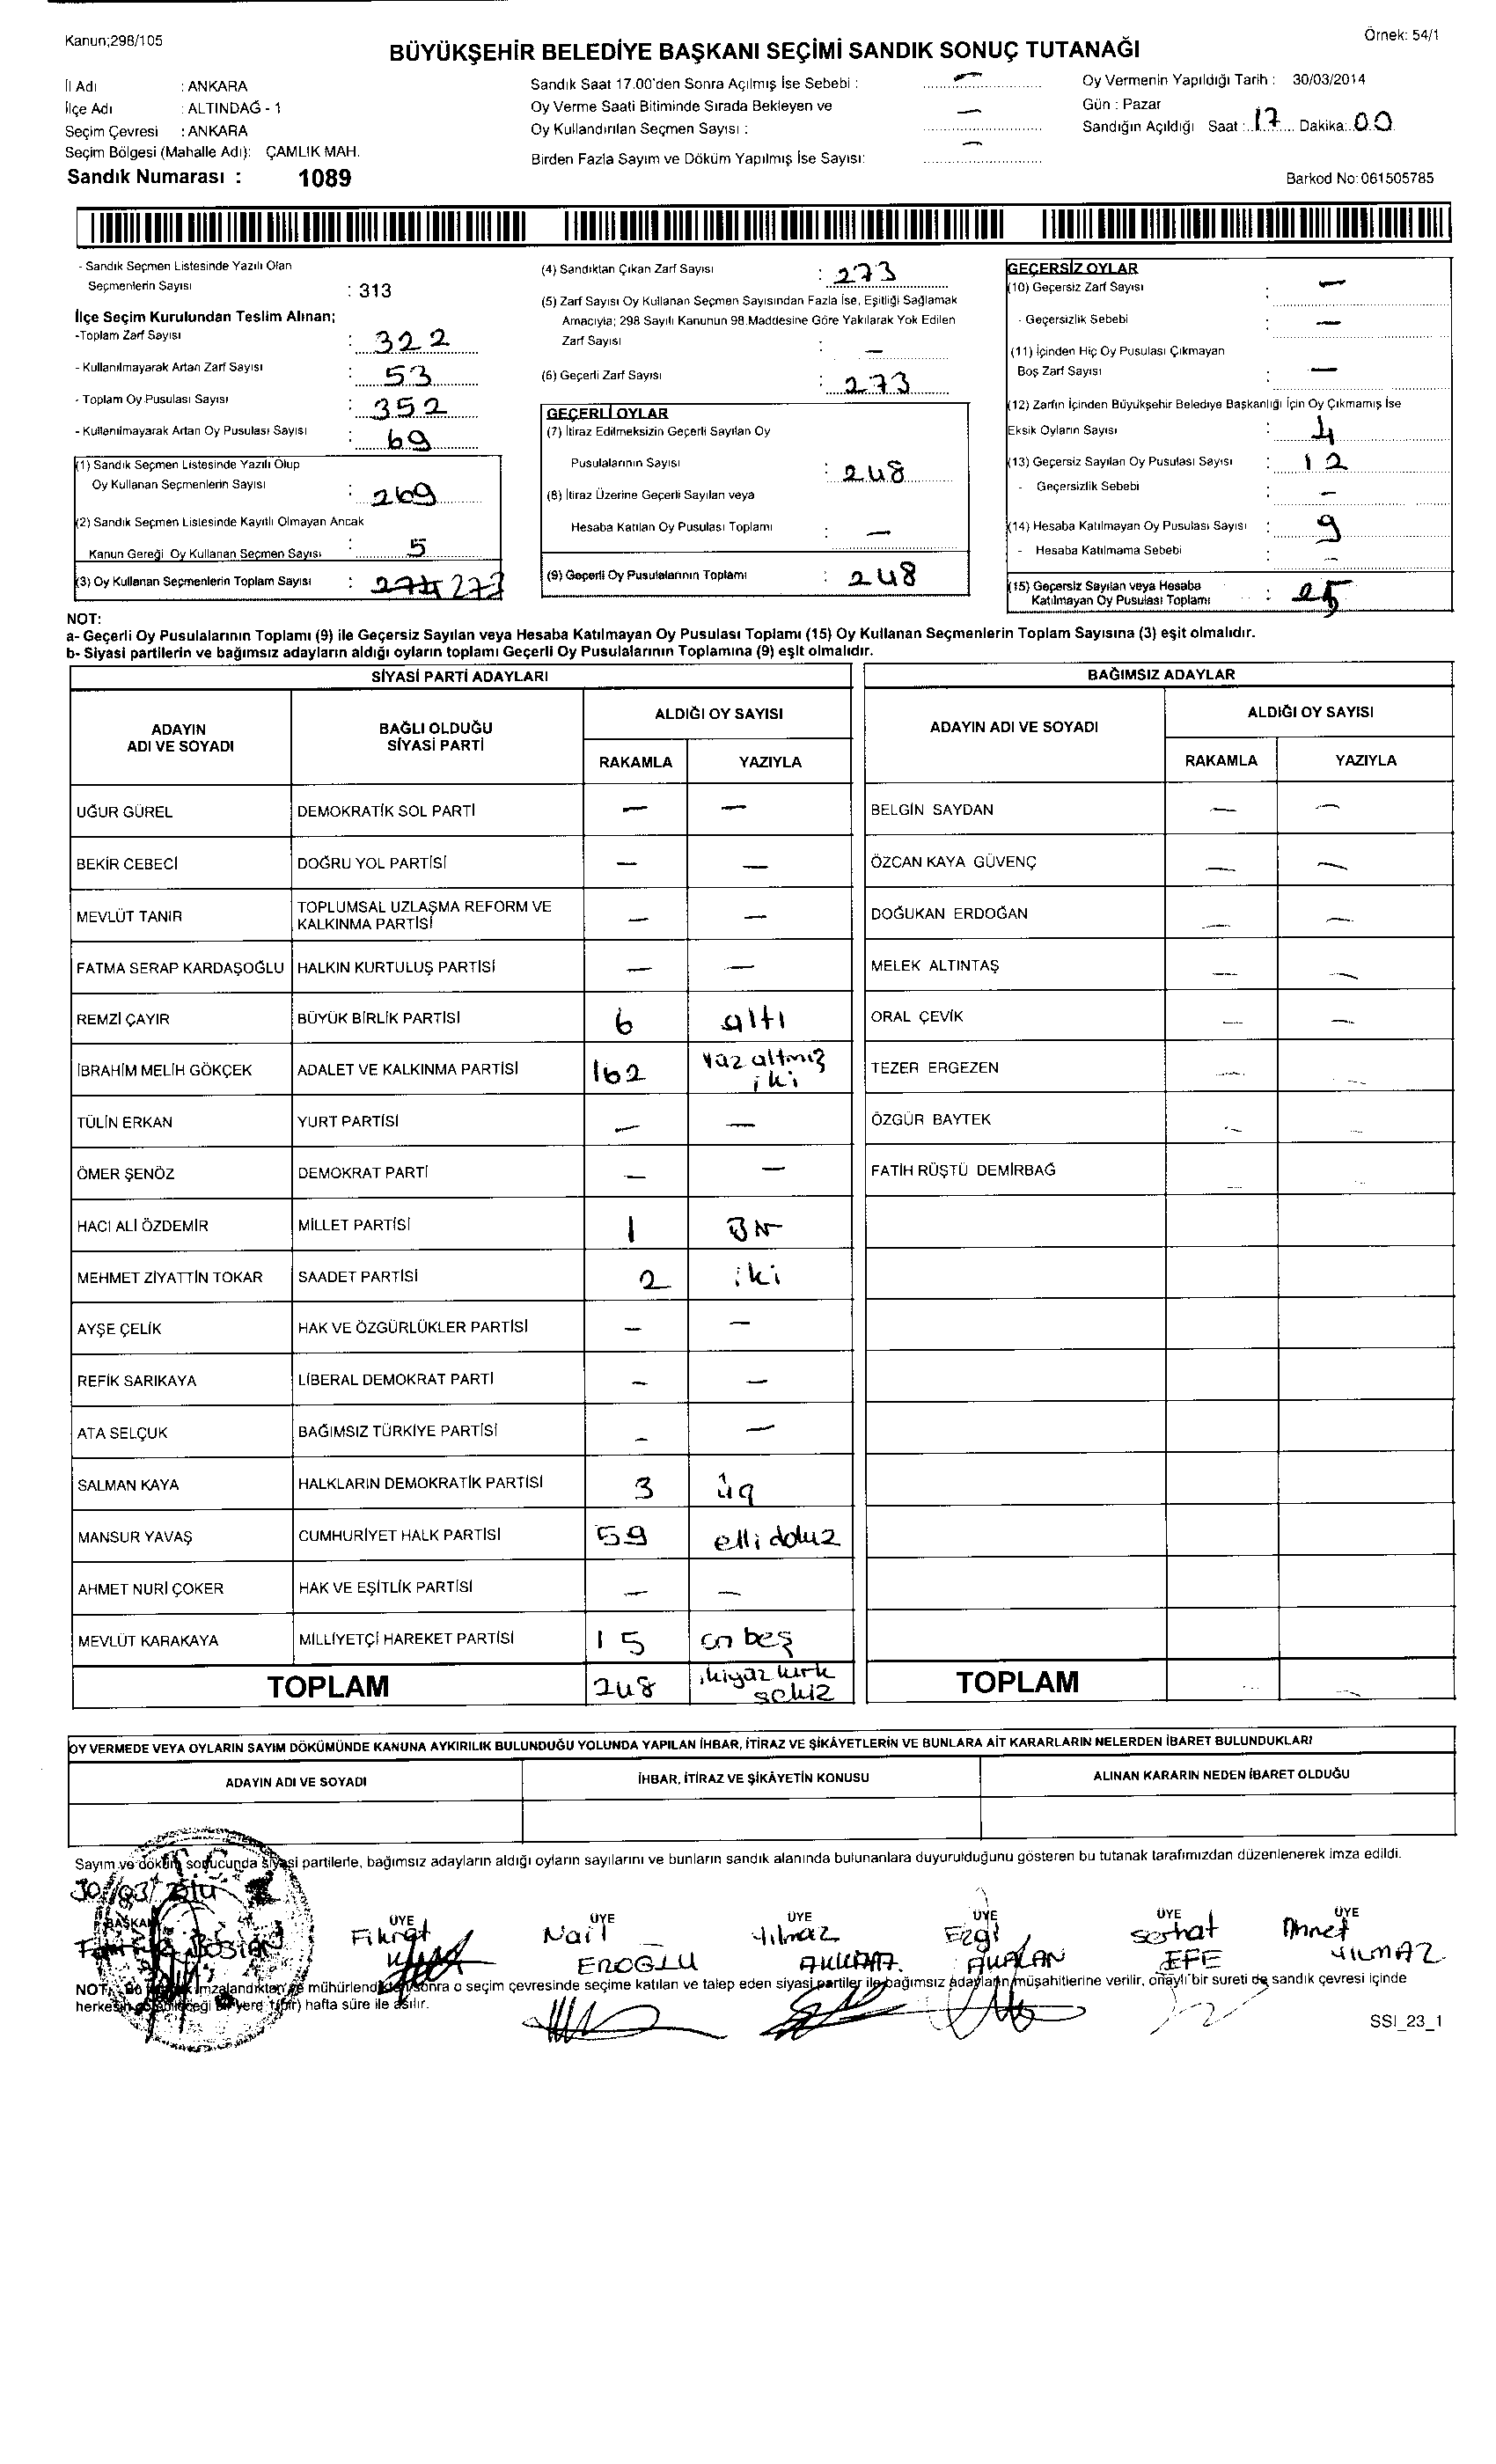 Kanun;298/105
Örnek: 54/1
BÜYÜKŞEHİR BELEDİYE BAŞKANI SEÇİMİ SANDIK SONUÇ TUTANAĞI
İl Adı : ANKARA
İlçe Adı : ALTINDAĞ - 1
Seçim Çevresi : ANKARA
Seçim Bölgesi (Mahalle Adı): ÇAMLIK MAH.
Sandık Numarası : 1089
Sandık Saat 17.00'den Sonra Açılmış İse Sebebi : —
Oy Verme Saati Bitiminde Sırada Bekleyen ve
Oy Kullandırılan Seçmen Sayısı : —
Birden Fazla Sayım ve Döküm Yapılmış İse Sayısı: —
Oy Vermenin Yapıldığı Tarih : 30/03/2014
Gün : Pazar
Sandığın Açıldığı Saat : 17 Dakika: 00
Barkod No: 061505785
- Sandık Seçmen Listesinde Yazılı Olan
Seçmenlerin Sayısı : 313
İlçe Seçim Kurulundan Teslim Alınan;
-Toplam Zarf Sayısı : 322
- Kullanılmayarak Artan Zarf Sayısı : 53
- Toplam Oy Pusulası Sayısı : 352
- Kullanılmayarak Artan Oy Pusulası Sayısı : 69
(1) Sandık Seçmen Listesinde Yazılı Olup
Oy Kullanan Seçmenlerin Sayısı : 269
(2) Sandık Seçmen Listesinde Kayıtlı Olmayan Ancak
Kanun Gereği Oy Kullanan Seçmen Sayısı : 5
(3) Oy Kullanan Seçmenlerin Toplam Sayısı : 273
(4) Sandıktan Çıkan Zarf Sayısı : 273
(5) Zarf Sayısı Oy Kullanan Seçmen Sayısından Fazla İse, Eşitliği Sağlamak
Amacıyla; 298 Sayılı Kanunun 98.Maddesine Göre Yakılarak Yok Edilen
Zarf Sayısı : —
(6) Geçerli Zarf Sayısı : 273
GEÇERLİ OYLAR
(7) İtiraz Edilmeksizin Geçerli Sayılan Oy
Pusulalarının Sayısı : 248
(8) İtiraz Üzerine Geçerli Sayılan veya
Hesaba Katılan Oy Pusulası Toplamı : —
(9) Geçerli Oy Pusulalarının Toplamı : 248
GEÇERSİZ OYLAR
(10) Geçersiz Zarf Sayısı : —
- Geçersizlik Sebebi : —
(11) İçinden Hiç Oy Pusulası Çıkmayan
Boş Zarf Sayısı : —
(12) Zarfın İçinden Büyükşehir Belediye Başkanlığı İçin Oy Çıkmamış İse
Eksik Oyların Sayısı : 4
(13) Geçersiz Sayılan Oy Pusulası Sayısı : 12
- Geçersizlik Sebebi : —
(14) Hesaba Katılmayan Oy Pusulası Sayısı : 9
- Hesaba Katılmama Sebebi : —
(15) Geçersiz Sayılan veya Hesaba
Katılmayan Oy Pusulası Toplamı : 25
NOT:
a- Geçerli Oy Pusulalarının Toplamı (9) ile Geçersiz Sayılan veya Hesaba Katılmayan Oy Pusulası Toplamı (15) Oy Kullanan Seçmenlerin Toplam Sayısına (3) eşit olmalıdır.
b- Siyasi partilerin ve bağımsız adayların aldığı oyların toplamı Geçerli Oy Pusulalarının Toplamına (9) eşit olmalıdır.
SİYASİ PARTİ ADAYLARI
ADAYIN
ADI VE SOYADI
BAĞLI OLDUĞU
SİYASİ PARTİ
ALDIĞI OY SAYISI
RAKAMLA YAZIYLA
UĞUR GÜREL DEMOKRATİK SOL PARTİ — —
BEKİR CEBECİ DOĞRU YOL PARTİSİ — —
MEVLÜT TANIR TOPLUMSAL UZLAŞMA REFORM VE
KALKINMA PARTİSİ — —
FATMA SERAP KARDAŞOĞLU HALKIN KURTULUŞ PARTİSİ — —
REMZİ ÇAYIR BÜYÜK BİRLİK PARTİSİ 6 altı
İBRAHİM MELİH GÖKÇEK ADALET VE KALKINMA PARTİSİ 162 yüz altmış
iki
TÜLİN ERKAN YURT PARTİSİ — —
ÖMER ŞENÖZ DEMOKRAT PARTİ — —
HACI ALİ ÖZDEMİR MİLLET PARTİSİ 1 Bir
MEHMET ZİYATTİN TOKAR SAADET PARTİSİ 2 iki
AYŞE ÇELİK HAK VE ÖZGÜRLÜKLER PARTİSİ — —
REFİK SARIKAYA LİBERAL DEMOKRAT PARTİ — —
ATA SELÇUK BAĞIMSIZ TÜRKİYE PARTİSİ — —
SALMAN KAYA HALKLARIN DEMOKRATİK PARTİSİ 3 üç
MANSUR YAVAŞ CUMHURİYET HALK PARTİSİ 59 elli dokuz
AHMET NURİ ÇOKER HAK VE EŞİTLİK PARTİSİ — —
MEVLÜT KARAKAYA MİLLİYETÇİ HAREKET PARTİSİ 15 on beş
TOPLAM 248 ikiyüz kırk
sekiz
BAĞIMSIZ ADAYLAR
ADAYIN ADI VE SOYADI
ALDIĞI OY SAYISI
RAKAMLA YAZIYLA
BELGİN SAYDAN — —
ÖZCAN KAYA GÜVENÇ — —
DOĞUKAN ERDOĞAN — —
MELEK ALTINTAŞ — —
ORAL ÇEVİK — —
TEZER ERGEZEN — —
ÖZGÜR BAYTEK — —
FATİH RÜŞTÜ DEMİRBAĞ — —
TOPLAM — —
OY VERMEDE VEYA OYLARIN SAYIM DÖKÜMÜNDE KANUNA AYKIRILIK BULUNDUĞU YOLUNDA YAPILAN İHBAR, İTİRAZ VE ŞİKÂYETLERİN VE BUNLARA AİT KARARLARIN NELERDEN İBARET BULUNDUKLARI
ADAYIN ADI VE SOYADI İHBAR, İTİRAZ VE ŞİKÂYETİN KONUSU ALINAN KARARIN NEDEN İBARET OLDUĞU
Sayım ve döküm sonucunda siyasi partilerle, bağımsız adayların aldığı oyların sayılarını ve bunların sandık alanında bulunanlara duyurulduğunu gösteren bu tutanak tarafımızdan düzenlenerek imza edildi.
30/03/2014
BAŞKAN ÜYE ÜYE ÜYE ÜYE ÜYE ÜYE
Fikret Nail Yılmaz Ezgi Serhat Ahmet
EROĞLU EFE YILMAZ
NOT: Bu imzalandıktan ve mühürlendikten sonra o seçim çevresinde seçime katılan ve talep eden siyasi partiler ile bağımsız adayların müşahitlerine verilir, onaylı bir sureti de sandık çevresi içinde
herkesin görebileceği bir yere 1 (bir) hafta süre ile asılır.
SSI_23_1